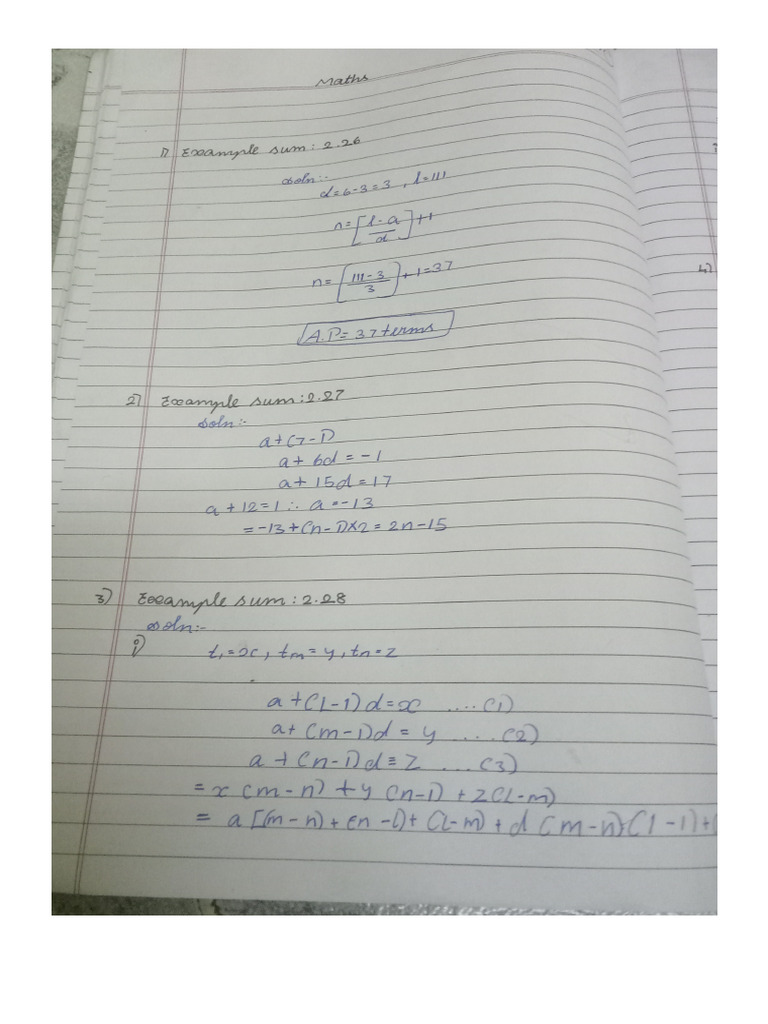 Maths
1) Example sum: 2.26
soln:-
d=6-3=3, l=111
n=[l-a/d]+1
n=(111-3/3)+1=37
A.P=37 terms
2) Example sum: 2.27
soln:-
a+(7-1)
a+6d=-1
a+15d=17
a+12=1∴ a=-13
=-13+(n-1)×2=2n-15
3) Example sum: 2.28
soln:-
i) t₁=x, tm=y, tn=z
a+(l-1)d=x ....(1)
a+(m-1)d=y ....(2)
a+(n-1)d=z ...(3)
=x(m-n)+y(n-l)+z(l-m)
=a[(m-n)+(n-l)+(l-m)+d(m-n)(l-1)+
4)